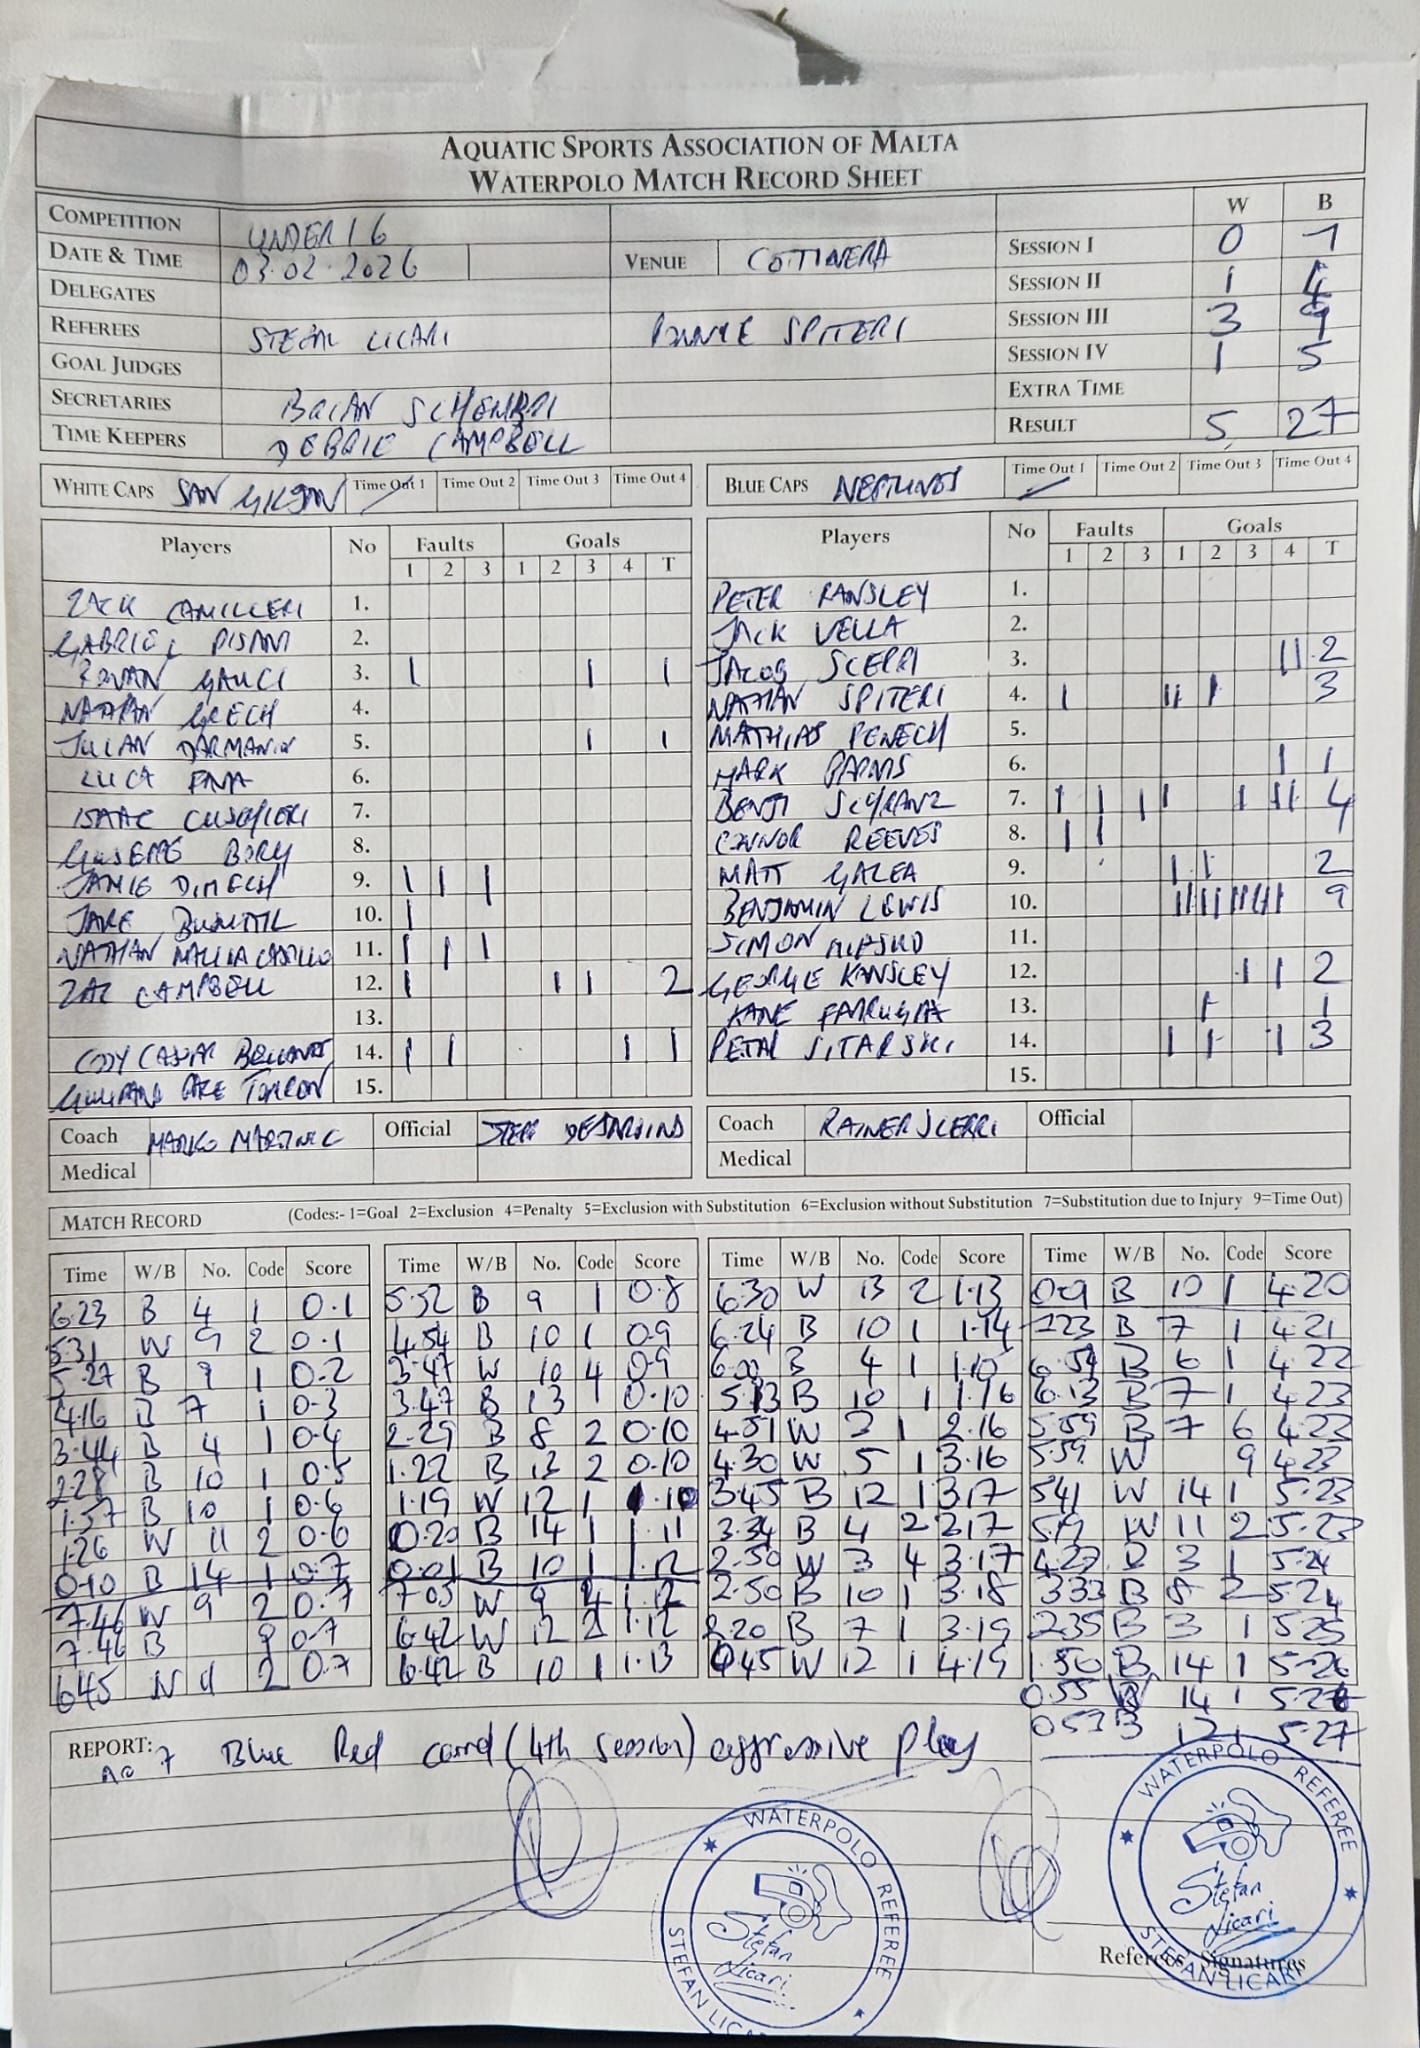 AQUATIC SPORTS ASSOCIATION OF MALTA
WATERPOLO MATCH RECORD SHEET
COMPETITION UNDER 16 W B
DATE & TIME 03.02.2026 VENUE COTTONERA SESSION I 0 7
DELEGATES SESSION II 1
REFEREES STEFAN LICARI SPITERI SESSION III 3 9
GOAL JUDGES SESSION IV 1 5
SECRETARIES BRIAN SCHEMBRI EXTRA TIME
TIME KEEPERS DEBBIE CAMPBELL RESULT 5 27
WHITE CAPS SAN GILJAN Time Out 1 Time Out 2 Time Out 3 Time Out 4
BLUE CAPS NEPTUNES Time Out 1 Time Out 2 Time Out 3 Time Out 4
Players No Faults Goals
1 2 3 1 2 3 4 T
ZACK CAMILLERI 1.
GABRIEL PISANI 2.
GAUCI 3. | | |
NATHAN GRECH 4.
JULIAN DARMANIN 5. | |
LUCA 6.
ISAAC CUSCHIERI 7.
BORG 8.
JAMIE DIMECH 9. | | |
JAKE 10. |
NATHAN 11. | | |
ZAC CAMPBELL 12. | | | 2
13.
CODY 14. | | | |
15.
Coach MARKO MARTINIC Official
Medical
Players No Faults Goals
1 2 3 1 2 3 4 T
PETER RANSLEY 1.
JACK VELLA 2.
JACOB SCERRI 3. || 2
NATHAN SPITERI 4. | || | 3
MATHIAS 5.
MARK 6. | |
BENJI 7. | | | | | || 4
CONNOR REEVES 8. | |
MATT GALEA 9. | | 2
BENJAMIN LEWIS 10. 9
SIMON 11.
GEORGE RANSLEY 12. | | 2
KANE FARRUGIA 13. | |
SITARSKI 14. | | | 3
15.
Coach RAINER SCERRI Official
Medical
MATCH RECORD (Codes:- 1=Goal 2=Exclusion 4=Penalty 5=Exclusion with Substitution 6=Exclusion without Substitution 7=Substitution due to Injury 9=Time Out)
Time W/B No. Code Score
6.23 B 4 1 0.1
5.31 W 9 2 0.1
5.27 B 9 1 0.2
4.16 B 7 1 0.3
3.44 B 4 1 0.4
2.28 B 10 1 0.5
1.57 B 10 1 0.6
1.26 W 11 2 0.6
0.10 B 14 1 0.7
7.46 W 9 2 0.7
7.46 B 9 0.7
6.45 2 0.7
Time W/B No. Code Score
5.52 B 9 1 0.8
4.54 B 10 1 0.9
3.47 W 10 4 0.9
3.47 B 13 1 0.10
2.29 B 8 2 0.10
1.22 B 13 2 0.10
1.19 W 12 1 1.10
0.20 B 14 1 1.11
0.01 B 10 1 1.12
7.05 W 9 1.12
6.42 W 12 1.12
6.42 B 10 1 1.13
Time W/B No. Code Score
6.30 W 13 2 1.13
6.24 B 10 1 1.14
6.00 B 4 1 1.15
B 10 1 1.16
4.51 W 3 1 2.16
4.30 W 5 1 3.16
3.45 B 12 1 3.17
3.34 B 4 2 3.17
2.50 W 3 4 3.17
2.50 B 10 1 3.18
2.20 B 7 1 3.19
0.45 W 12 1 4.19
Time W/B No. Code Score
0.9 B 10 1 4.20
7.23 B 7 1 4.21
6.54 B 6 1 4.22
6.13 B 7 1 4.23
5.59 B 7 6 4.23
5.59 W 9 4.23
5.41 W 14 1 5.23
W 11 2 5.23
B 3 1 5.24
3.33 B 8 2 5.24
2.35 B 3 1 5.25
1.50 B 14 1 5.26
0.55 14 1
0.53 B 12 1 5.27
REPORT: No 7 Blue Red card (4th session) aggressive play
WATERPOLO REFEREE
Stefan Licari
STEFAN LICARI
WATERPOLO REFEREE
Stefan Licari
STEFAN LICARI
Referees Signatures